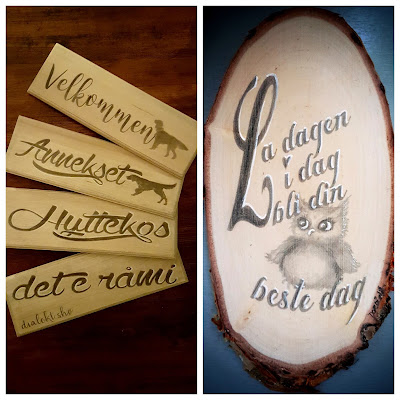 Velkommen
Annekset
Hyttekos
det e råmi
dialekt.sho
La dagen
i dag
bli din
beste dag